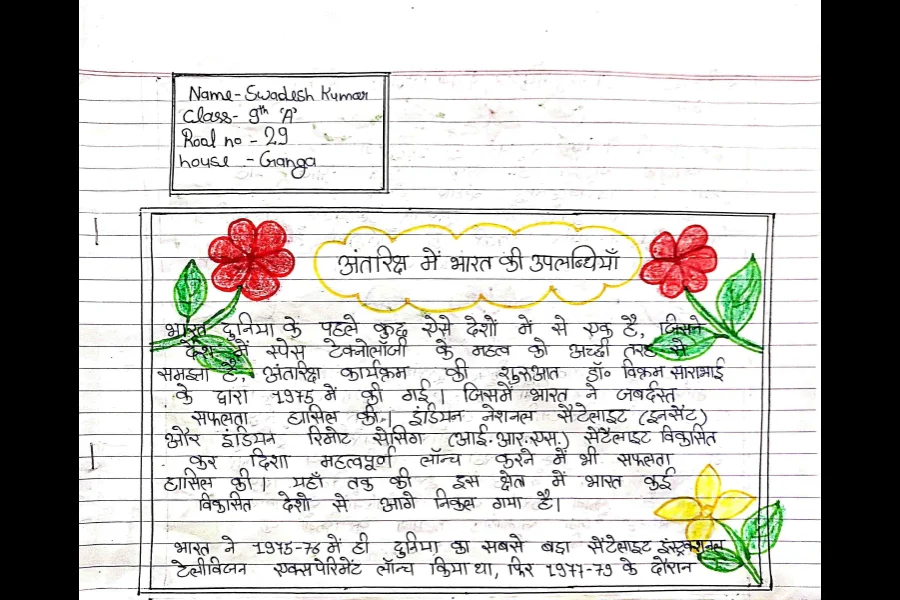 Name- Swadesh Kumar
Class- 9th 'A'
Roal no - 29
house - Ganga
अंतरिक्ष में भारत की उपलब्धियाँ
भारत दुनिया के पहले कुछ ऐसे देशों में से एक है, जिसने
देश में स्पेस टेक्नोलॉजी के महत्व को अच्छी तरह से
समझा है, अंतरिक्ष कार्यक्रम की शुरुआत डॉ० विक्रम साराभाई
के द्वारा 1975 में की गई। जिसमें भारत ने जबर्दस्त
सफलता हासिल की। इंडियन नेशनल सैटेलाइट (इनसेंट)
और इंडियन रिमोट सेसिंग (आई.आर.एस.) सेटेलाइट विकासित
कर दिशा महत्वपूर्ण लॉन्च करने में भी सफलता
हासिल की। यहाँ तक की इस क्षेत्र में भारत कई
विकासित देशो से आगे निकल गया है।
भारत ने 1975-76 में ही दुनिया का सबसे बड़ा सेटेलाइट इंस्ट्रक्शनल
टेलीविजन एक्सपेरिमेंट लॉन्च किया था, फिर 1977-79 के दौरान